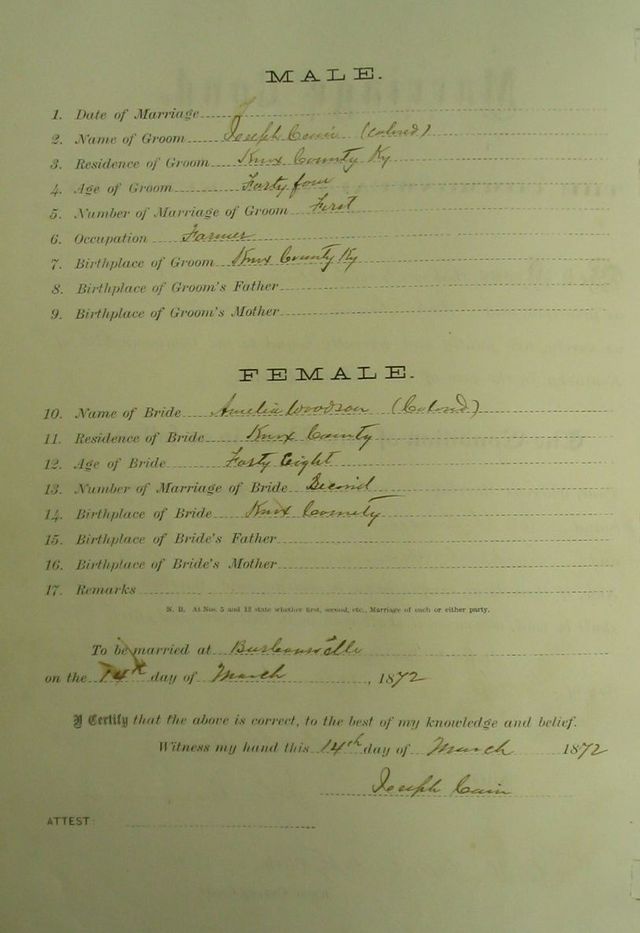 MALE.
1. Date of Marriage
2. Name of Groom Joseph Cain (Colored)
3. Residence of Groom Knox County Ky
4. Age of Groom Forty four
5. Number of Marriage of Groom First
6. Occupation Farmer
7. Birthplace of Groom Knox County Ky
8. Birthplace of Groom's Father
9. Birthplace of Groom's Mother
FEMALE.
10. Name of Bride Amelia Woodson (Colored)
11. Residence of Bride Knox County
12. Age of Bride Forty Eight
13. Number of Marriage of Bride Second
14. Birthplace of Bride Knox County
15. Birthplace of Bride's Father
16. Birthplace of Bride's Mother
17. Remarks
N. B. At Nos. 5 and 13 state whether first, second, etc., Marriage of each or either party.
To be married at Barbourville
on the 14th day of March, 1872
I Certify that the above is correct, to the best of my knowledge and belief.
Witness my hand this 14th day of March 1872
Joseph Cain
ATTEST: